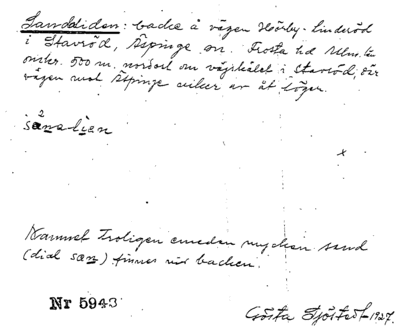 Sandaliden: backe å vägen Hörby-Linderöd
i Stavröd, Äspinge sn. Frosta hd Malm. län
500 m. nordost om vägskälet i Stavröd, där
vägen mot Äspinge viker av åt höger.
2
sanalien
x
Namnet Troligen emedan mycken sand
(dial san) finnes vid backen.
Nr 5943
Gösta Sjöstedt 1927.